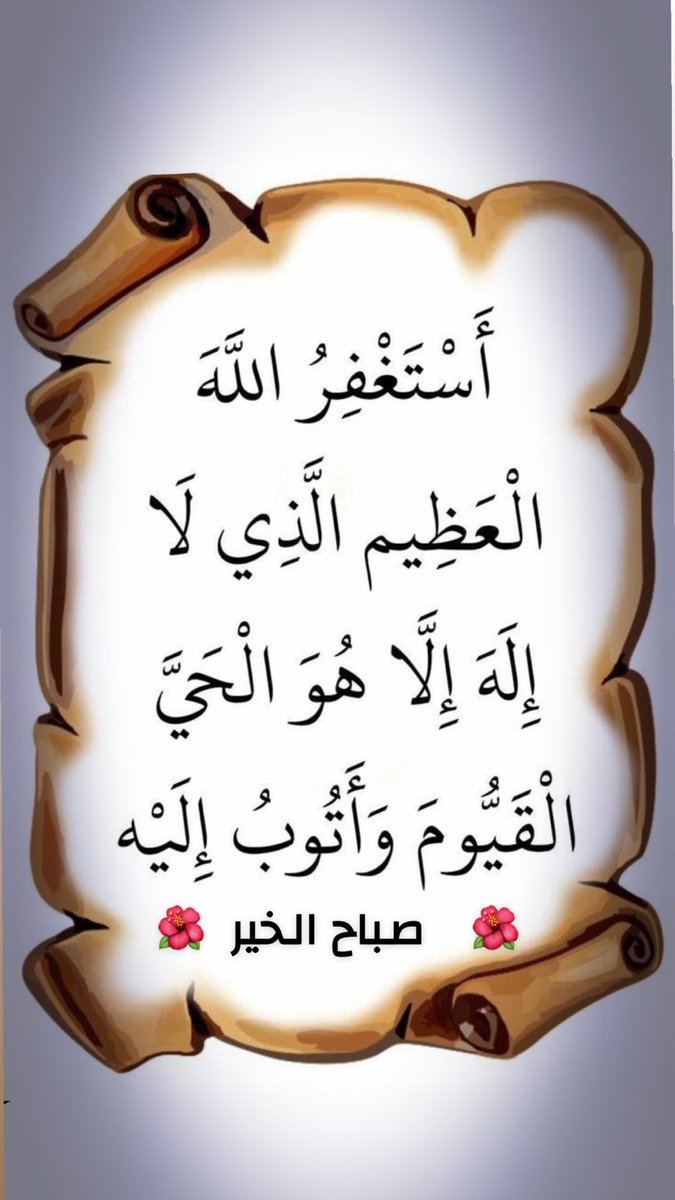 أَسْتَغْفِرُ اللَّهَ
الْعَظِيم الَّذِي لَا
إِلَهَ إِلَّا هُوَ الْحَيَّ
الْقَيُّومَ وَأَتُوبُ إِلَيْه
🌺 صباح الخير 🌺